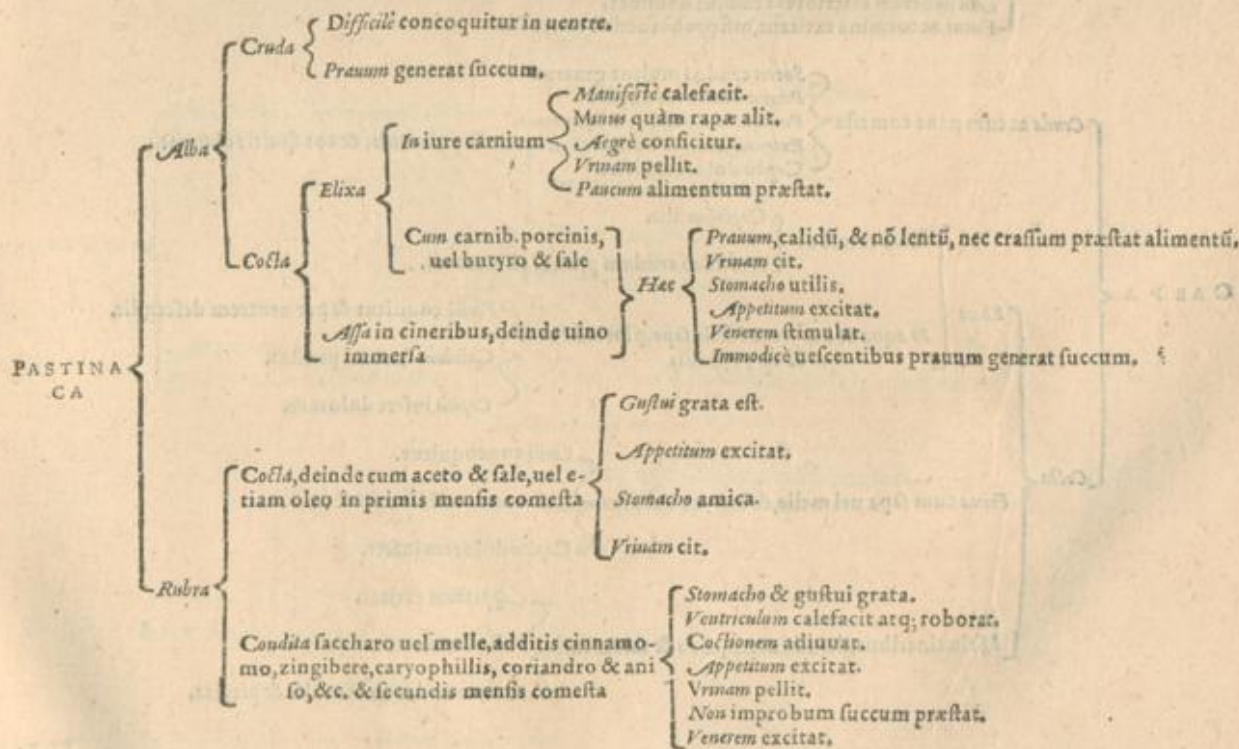 PASTINA
CA
Alba
Cruda
Difficilè concoquitur in uentre.
Prauum generat ſuccum.
Cocta
Elixa
In iure carnium
Manifeſtè calefacit.
Minus quàm rapæ alit.
Aegrè conficitur.
Vrinam pellit.
Paucum alimentum præſtat.
Cum carnib. porcinis,
uel butyro & ſale
Aſſa in cineribus, deinde uino
immerſa
Hæc
Prauum, calidū, & nō lentū, nec craſſum præſtat alimentū,
Vrinam cit.
Stomacho utilis.
Appetitum excitat.
Venerem ſtimulat.
Immodicè ueſcentibus prauum generat ſuccum.
Rubra
Cocta, deinde cum aceto & ſale, uel e-
tiam oleo in primis menſis comeſta
Guſtui grata eſt.
Appetitum excitat.
Stomacho amica.
Vrinam cit.
Condita ſaccharo uel melle, additis cinnamo-
mo, zingibere, caryophillis, coriandro & ani
ſo, &c. & ſecundis menſis comeſta
Stomacho & guſtui grata.
Ventriculum calefacit atq; roborat.
Coctionem adiuuat.
Appetitum excitat.
Vrinam pellit.
Non improbum ſuccum præſtat.
Venerem excitat.